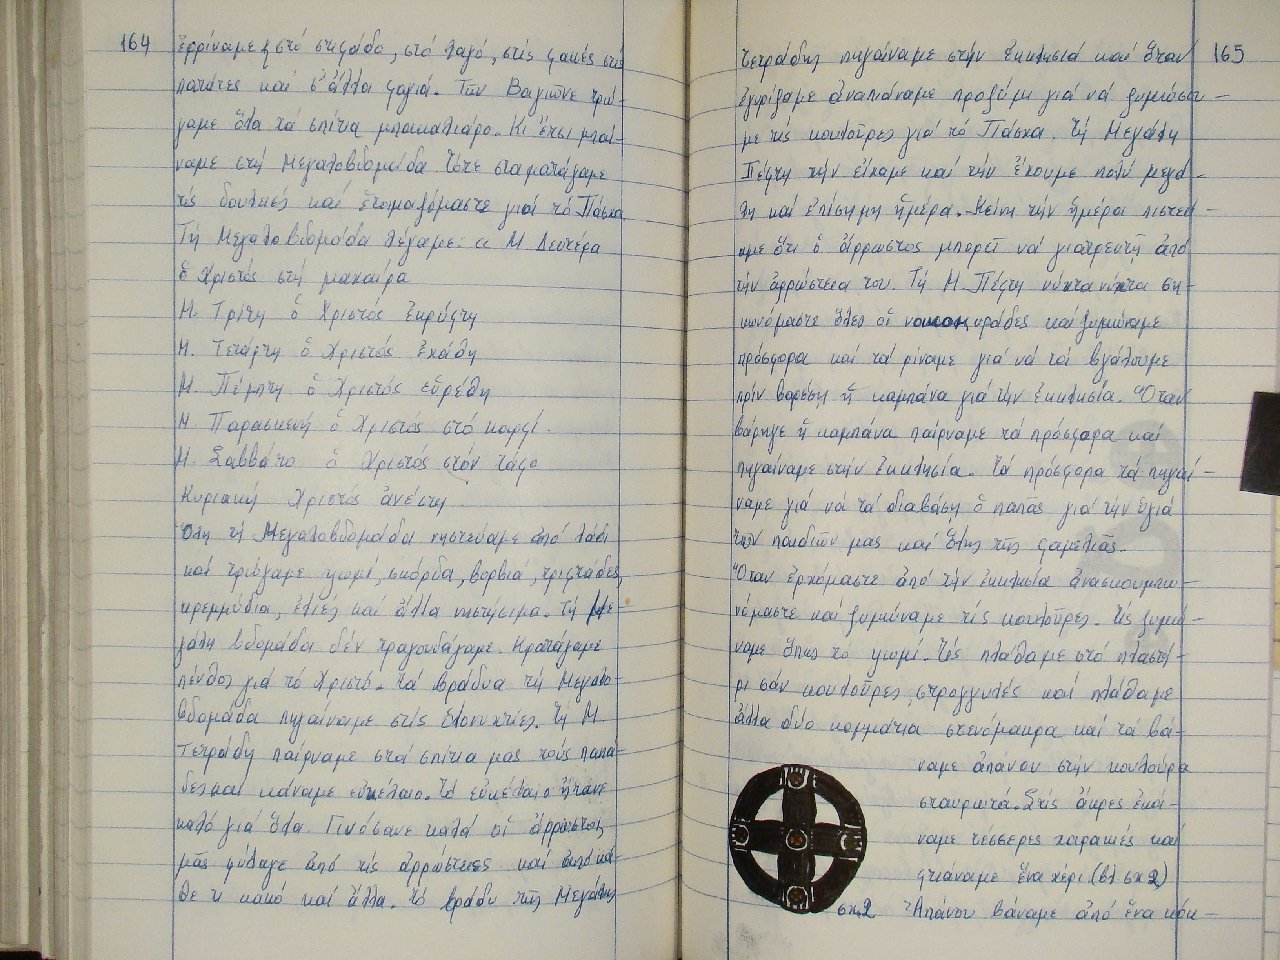 164
ἐρρίναμε κ̀ στό στιφάδο, στό λαγό, στίς φακές στίς
πατάτες καί σ' ἄλλα φαγιά. Τῶν Βαγιῶνε τρώ-
γαμε ὅλα τά σπίτια μπακαλιάρο. Κι ἔτσι μπαί-
ναμε στή Μεγαλοβδομάδα. Τότε σταματάγαμε
τίς δουλειές καί ἑτοιμαζόμαστε γιά τό Πάσχα
Τή Μεγαλοβδομάδα λέγαμε: Μ Δευτέρα
ὁ Χριστός στή μαχαίρα
Μ. Τρίτη ὁ Χριστός ἐκρύφτη
Μ. Τετάρτη ὁ Χριστός ἐχάθη
Μ. Πέμπτη ὁ Χριστός εὑρέθη
Μ Παρασκευή ὁ Χριστός στό καρφί.
Μ. Σάββατο ὁ Χριστός στόν τάφο
Κυριακή Χριστός ἀνέστη
Ὅλη τή Μεγαλοβδομάδα νηστεύαμε ἀπό λάδι
καί τρώγαμε ψωμί, σκόρδα, βορβιά, τριφτάδες,
κρεμμύδια, ἐλιές καί ἄλλα νηστήσιμα. Τή Με-
γάλη βδομάδα δέν τραγουδάγαμε. Κρατάγαμε
πένθος γιά τό Χριστό. Τά βράδυα τή Μεγαλο-
βδομάδα πηγαίναμε στίς ὁλονυχτίες. Τή Μ
Τετράδη παίρναμε στά σπίτια μας τούς παπά-
δες καί κάναμε εὐκέλαιο. Τό εὐκέλαιο ἤτανε
καλό γιά ὅλα. Γινόσανε καλά οἱ ἄρρωστοι,
μᾶς φύλαγε ἀπό τίς ἀρρώστειες καί ἀπό κά-
θε τι κακό καί ἄλλα. Τό βράδυ τῆς Μεγάλης
165
τετράδης πηγαίναμε στήν ἐκκλησιά καί ὅταν
ἐγυρίζαμε ἀναπιάναμε προζύμι γιά νά ζυμώσου-
με τίς κουλοῦρες γιά τό Πάσχα. Τή Μεγάλη
Πέφτη τήν εἴχαμε καί τήν ἔχουμε πολύ μεγά-
λη καί ἐπίσημη ἡμέρα. Κείνη τήν ἡμέρα πιστεύ-
αμε ὅτι ὁ ἄρρωστος μπορεῖ νά γιατρευτῆ ἀπό
τήν ἀρρώστεια του. Τή Μ. Πέφτη νύχτα νύχτα ση-
κωνόμαστε ὅλες οἱ νοικοκυράδες καί ζυμώναμε
πρόσφορα καί τά ρίναμε γιά νά τά βγάλουμε
πρίν βαρέση ἡ καμπάνα γιά τήν ἐκκλησία. Ὅταν
βάρηγε ἡ καμπάνα παίρναμε τά πρόσφορα καί
πηγαίναμε στήν ἐκκλησία. Τά πρόσφορα τά πηγαί-
ναμε γιά νά τά διαβάση ὁ παπᾶς γιά τήν ὑγιά
τῶν παιδιῶν μας καί ὅλης τῆς φαμελιᾶς.
Ὅταν ἐρχόμαστε ἀπό τήν ἐκκλησία ἀνασκουμπω-
νόμαστε καί ζυμώναμε τίς κουλοῦρες. Τίς ζυμώ-
ναμε ὅπως τό ψωμί. Τίς πλάθαμε στό πλαστή-
ρι σάν κουλοῦρες, στρογγυλές καί πλάθαμε
ἄλλα δύο κομμάτια στενόμακρα καί τά βά-
ναμε ἀπάνου στήν κουλούρα
σταυρωτά. Στίς ἄκρες ἐκά-
ναμε τέσσερες χαρακιές καί
φτιάναμε ἕνα χέρι (βλ σχ 2)
σχ 2 Ἀπάνου βάναμε ἀπό ἕνα κόκ-